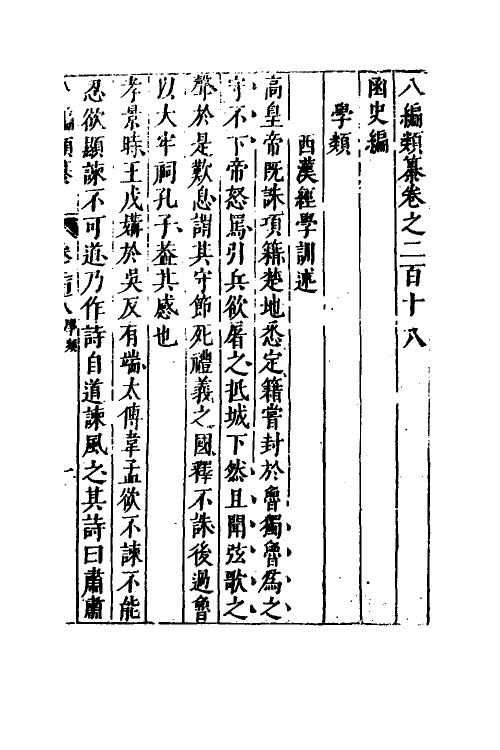 八編類纂卷之二百十八
函史編
學類
西漢經學訓述
高皇帝既誅項籍楚地悉定籍嘗封於魯獨魯爲之
守不下帝怒爲引兵欲屠之抵城下然且聞弦歌之
聲於是歎息謂其守節死禮義之國釋不誅後過魯
以大牢祠孔子葢其感也
孝景時王戊媾於吳反有端太傅韋孟欲不諫不能
忍欲顯諫不可道乃作詩自道諫風之其詩曰肅肅
八編類纂 卷二百十八 學類 一